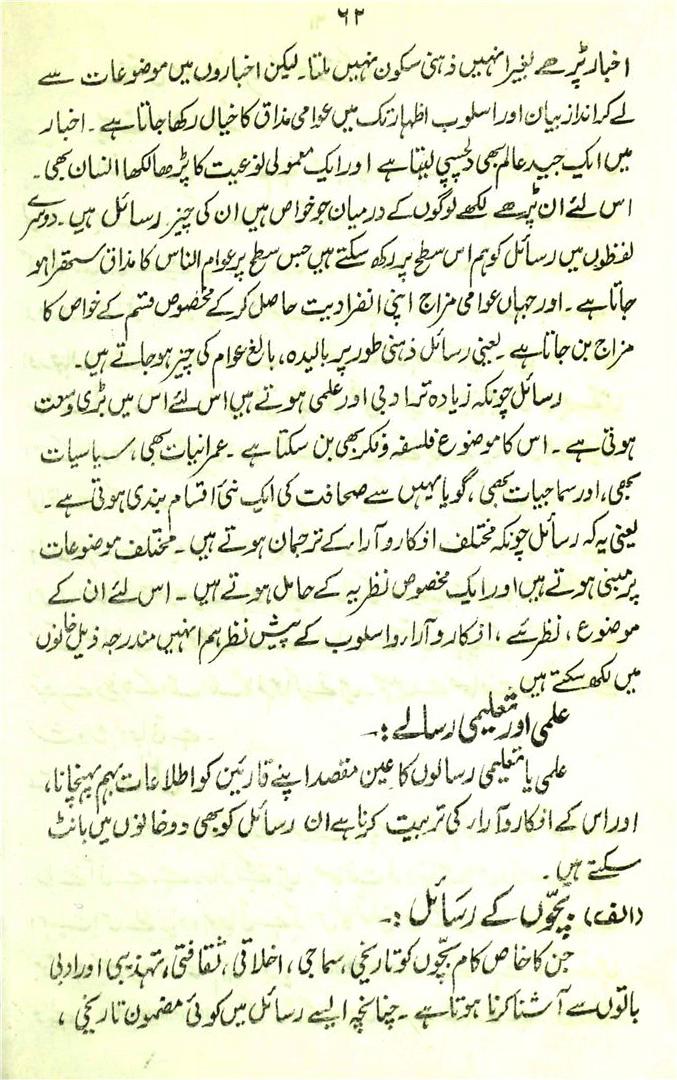 ۶۲
اخبار پڑھے بغیر انہیں ذہنی سکون نہیں ملتا۔ لیکن اخباروں میں موضوعات سے
لے کر انداز بیان اور اسلوب اظہار تک میں عوامی مذاق کا خیال رکھا جاتا ہے۔ اخبار
میں ایک جید عالم بھی دلچسپی لیتا ہے اور ایک معمولی نوعیت کا پڑھا لکھا انسان بھی۔
اس لئے ان پڑھے لکھے لوگوں کے درمیان جو خواص ہیں ان کی چیز رسائل ہیں۔ دوسرے
لفظوں میں رسائل کو ہم اس سطح پر رکھ سکتے ہیں جس سطح پر عوام الناس کا مذاق ستھرا ہو
جاتا ہے۔ اور جہاں عوامی مزاج اپنی انفرادیت حاصل کرکے مخصوص قسم کے خواص کا
مزاج بن جاتا ہے۔ یعنی رسائل ذہنی طور پر بالیدہ، بالغ عوام کی چیز ہو جاتے ہیں۔
رسائل چونکہ زیادہ تر ادبی اور علمی ہوتے ہیں اس لئے اس میں بڑی وسعت
ہوتی ہے۔ اس کا موضوع فلسفہ و فکر بھی بن سکتا ہے۔ عمرانیات بھی، سیاسیات
بھی، اور سماجیات بھی، گویا یہیں سے صحافت کی ایک نئی اقسام بندی ہوتی ہے۔
یعنی یہ کہ رسائل چونکہ مختلف افکار و آراء کے ترجمان ہوتے ہیں۔ مختلف موضوعات
پر مبنی ہوتے ہیں اور ایک مخصوص نظریہ کے حامل ہوتے ہیں۔ اس لئے ان کے
موضوع، نظریے، افکار و آراء و اسلوب کے پیش نظر ہم انہیں مندرجہ ذیل خانوں
میں لکھ سکتے ہیں
علمی اور تعلیمی رسالے :۔
علمی یا تعلیمی رسالوں کا عین مقصد اپنے قارئین کو اطلاعات بہم پہنچانا،
اور اس کے افکار و آراء کی تربیت کرنا ہے ان رسائل کو بھی دو خانوں میں بانٹ
سکتے ہیں۔
(الف) بچوں کے رسائل :۔
جن کا خاص کام بچوں کو تاریخی، سماجی، اخلاقی، ثقافتی، تہذیبی اور ادبی
باتوں سے آشنا کرنا ہوتا ہے۔ چنانچہ ایسے رسائل میں کوئی مضمون تاریخی،